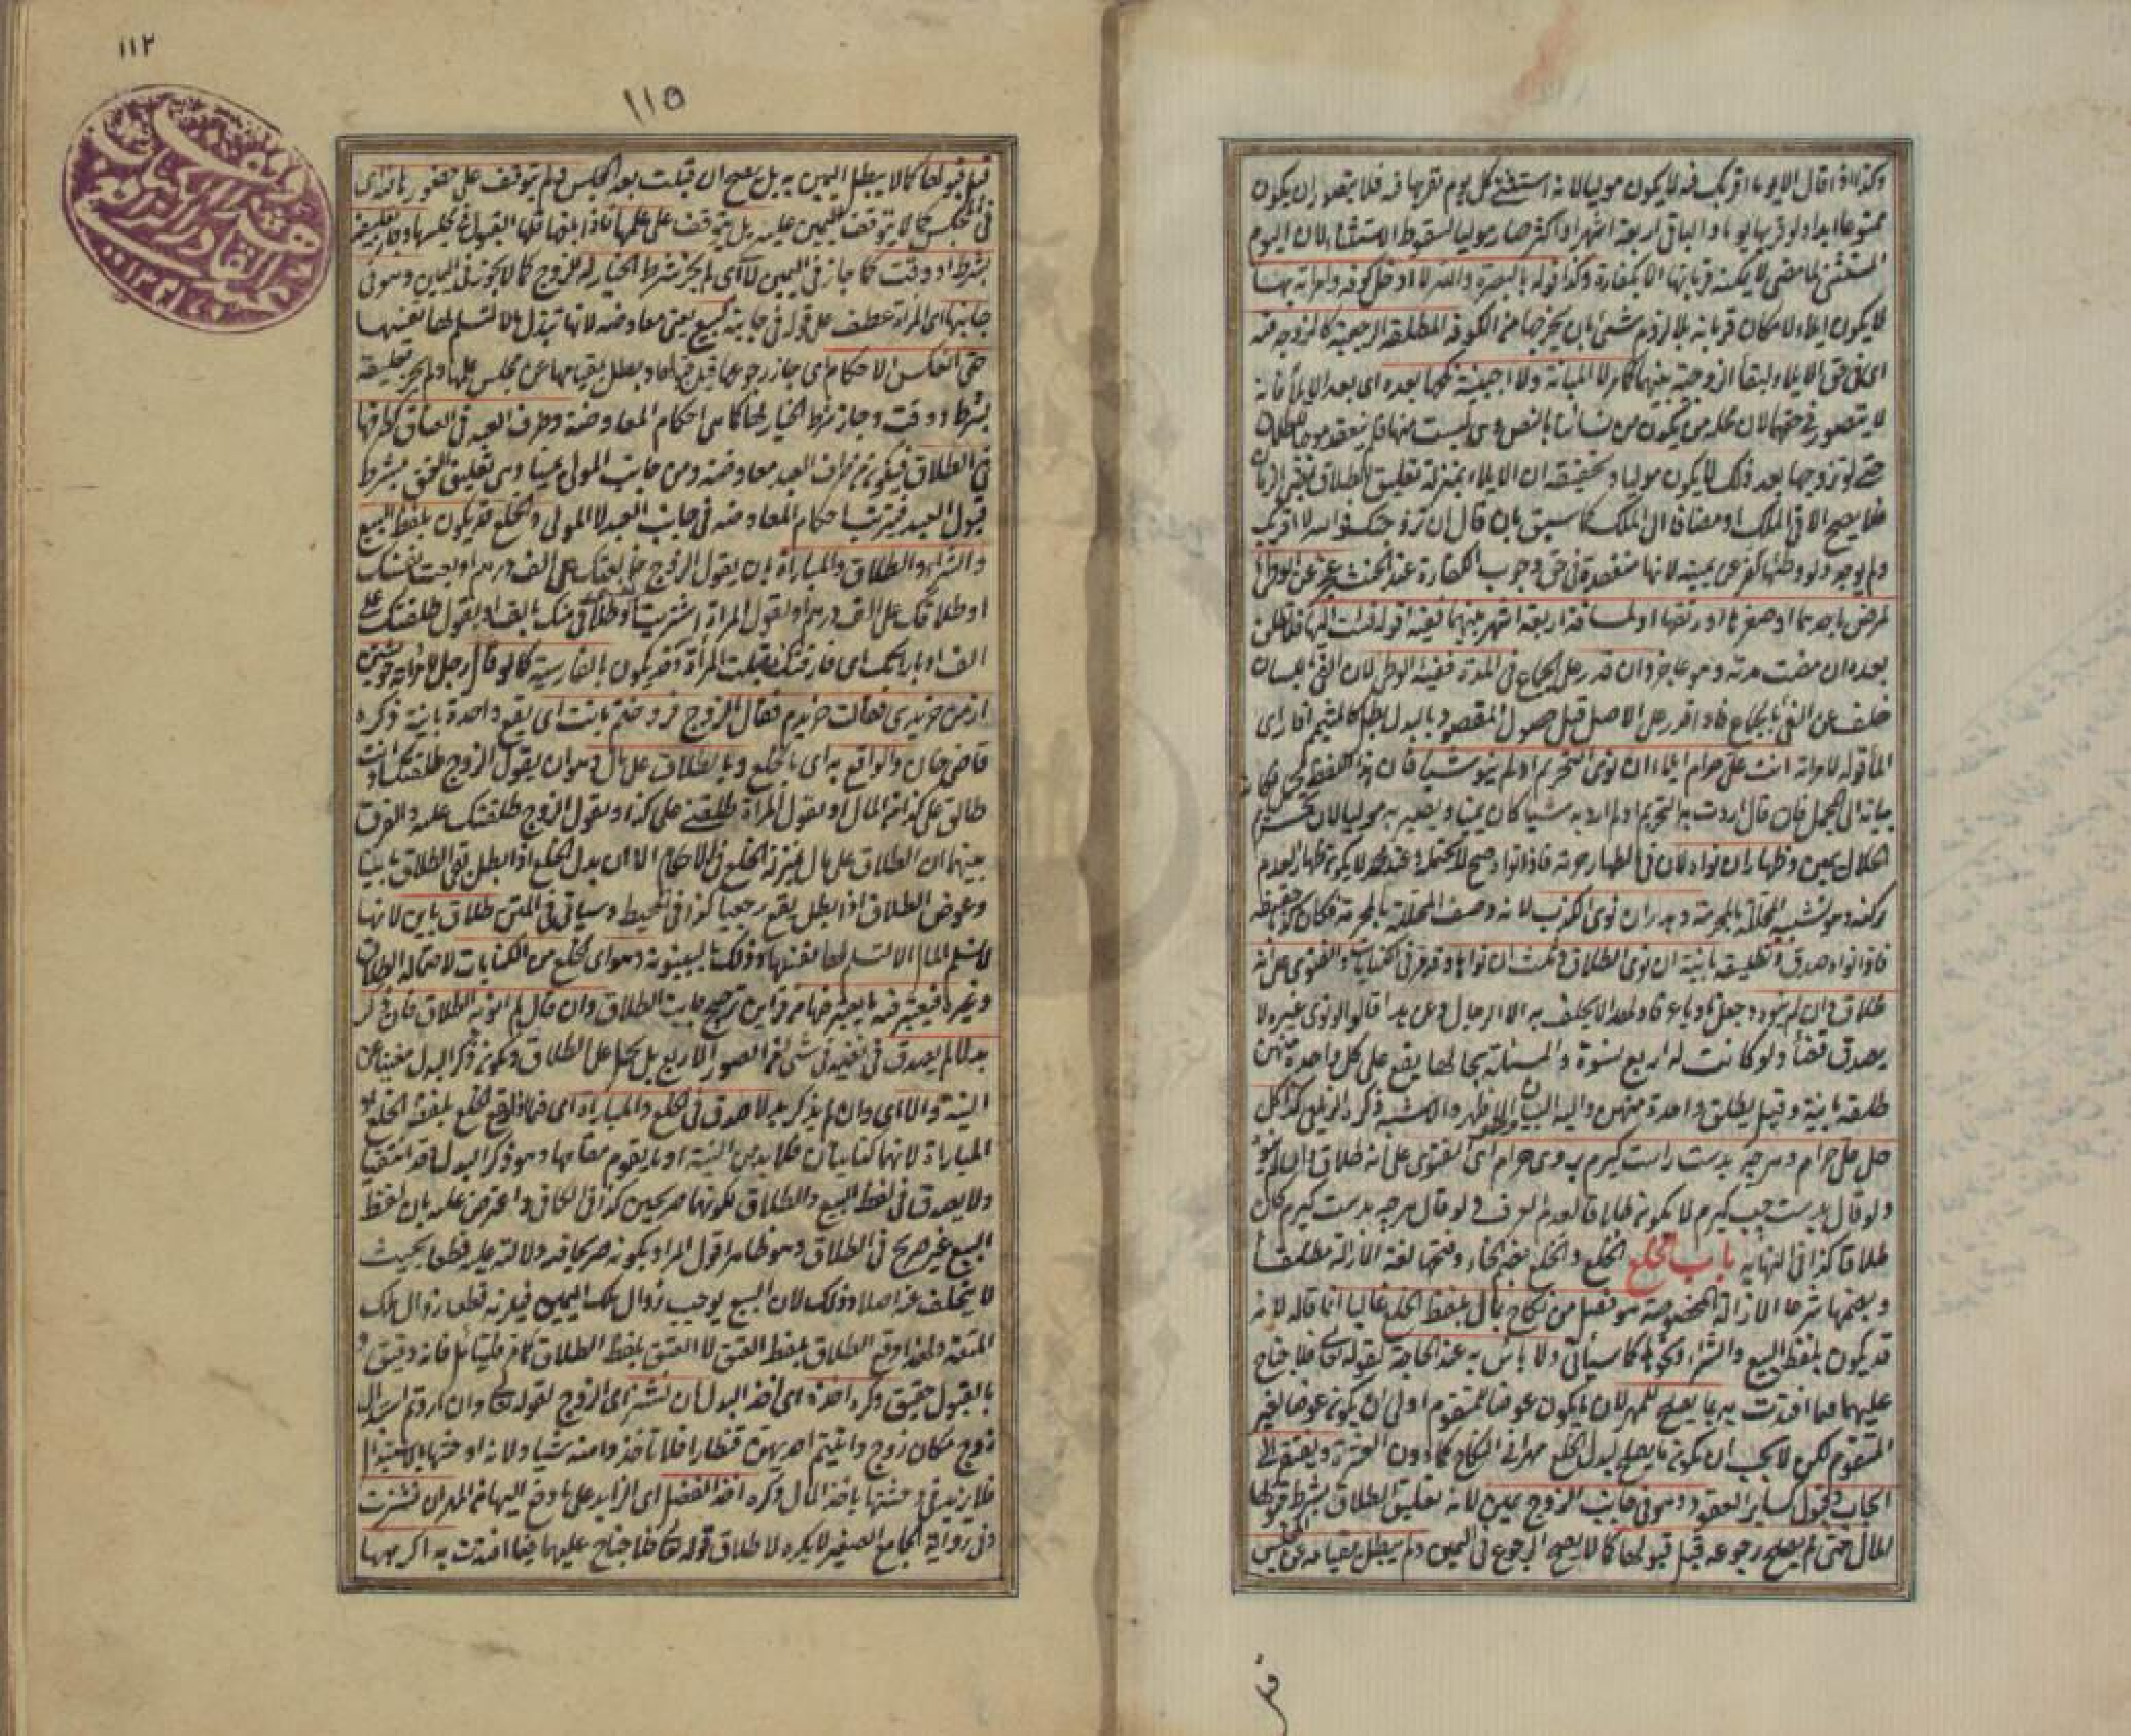 وكذا اذا قال الا يوما اقربك فيه لا يكون موليا لانه استثنى كل يوم يقربها فيه فلا يتصور ان يكون
ممنوعا ابدا ولو قربها يوما والباقى اربعة اشهر او اكثر صار موليا لسقوط الاستثناء لان اليوم
المستثنى لما مضى لا يمكنه قربانها الا بكفارة وكذا قوله بالبصرة والله لا ادخل كوفة وامرأته بها
لا يكون ايلاء لامكان قربانه بلا لزوم شئ بان يخرجها من الكوفة المطلقة الرجعية كالزوجة فيه
اى فى حق الايلاء لبقاء الزوجية بينهما كما مر لا المبانة ولا اجنبية نكحها بعده اى بعد الايلاء فانه
لا يتصور فى حقها لان محله من يكون من نسائنا بالنص وهى ليست منها فلم ينعقد موجبا للطلاق
حتى لو تزوجها بعد ذلك لا يكون موليا وتحقيقه ان الايلاء بمنزلة تعليق الطلاق بمضى الزمان
فلا يصح الا فى الملك او مضافا الى الملك كما سبق بان قال ان تزوجتك فوالله لا اقربك
ولم يوجد ولو وطئها كفر عن يمينه لانها منعقدة فى حق وجوب الكفارة عند الحنث عجز عن الوطئ
لمرض باحدهما او صغرها او رتقها او لمسافة اربعة اشهر بينهما ففيئه قوله فئت اليها فلا تطلق
بعده ان مضت مدته وهو عاجز وان قدر على الجماع فى المدة ففيئه الوطئ لان الفئ باللسان
خلف عن الفئ بالجماع فاذا قدر على الاصل قبل حصول المقصود بالبدل بطل كالمتيمم اذا رأى
الماء قوله لامرأته انت على حرام ايلاء ان نوى التحريم او لم ينو شيئا فان هذا اللفظ مجمل فكان
بيانه الى المجمل فان قال اردت به التحريم او لم ارد به شيئا كان يمينا ويصير به موليا لان تحريم
الحلال يمين وظهار ان نواه لان فى الظهار حرمة فاذا نواه صح لانه يحتمله وعند محمد لا يكون ظهارا لعدم
ركنه وهو تشبيه المحللة بالمحرمة وهدر ان نوى الكذب لانه وصف المحللة بالمحرمة فكان كذبا حقيقة
فاذا نواه صدق وتطليقة بائنة ان نوى الطلاق وثلث ان نواها وقد مر فى الكنايات والفتوى على انه
طلاق وان لم ينوه وجعل ناويا عرفا ولهذا لا يحلف به الا الرجال وعن هذا قالوا لو نوى غيره لا
يصدق قضاء ولو كانت له اربع نسوة والمسئلة بحالها يقع على كل واحدة منهن
طلقة بائنة وقيل يطلق واحدة منهن واليه البيان وهو الاظهر والاشبه ذكره الزيلعى كذا كل
حل على حرام وهرچه بدست راست گيرم بر وى حرام اى الفتوى على انه طلاق وان لم ينو
ولو قال بدست چپ گيرم لا يكون طلاقا لعدم العرف ولو قال هرچه بدست گيرم كان
طلاقا كذا فى النهاية باب الخلع الخلع والخلع بضم الخاء وفتحها لغة الازالة مطلقا
وبضمها شرعا الازالة المخصوصة هو فصل من نكاح بمال بلفظ الخلع غالبا انما قاله لانه
قد يكون بلفظ البيع والشراء ونحوهما كما سيأتى ولا بأس به عند الحاجة لقوله تعالى فلا جناح
عليهما فيما افتدت به بما يصلح للمهر لان ما يكون عوضا للمتقوم اولى ان يكون عوضا لغير
المتقوم لكن لا يجب ان يكون ما يصلح لبدل الخلع مهرا فى النكاح كما دون العشرة ويفتقر الى
ايجاب وقبول كسائر العقود وهو فى جانب الزوج يمين لانه تعليق الطلاق بشرط قبولها
المال حتى لم يصح رجوعه قبل قبولها كما لا يصح الرجوع فى اليمين ولم يبطل بقيامه عن المجلس
١١٢
١١٥
قبل قبولها كما لا يبطل اليمين به بل يصح ان قبلت بعد المجلس ولم يتوقف على حضورها اى
فى المجلس كما لا يتوقف اليمين عليه بل يتوقف على علمها فاذا بلغها فلها القبول فى مجلسها وجاز تعليقه
بشرط او وقت كما جاز فى اليمين لا اى لم يجز شرط الخيار له للزوج كما لا يجوز فى اليمين وهو فى
جانبها اى المرأة عطف على قوله فى جانبه كبيع يعنى معاوضة لانها تبذل مالا لتسلم لها نفسها
حتى انعكس الاحكام اى جاز رجوعها قبل قبوله وبطل بقيامها عن مجلس علمها ولم يجز تعليقه
بشرط ووقت وجاز شرط الخيار لها كما هى احكام المعاوضة وطرف العبد فى العتاق كطرفها
فى الطلاق فيكون من طرف العبد معاوضة ومن جانب المولى يمينا وهى تعليق العتق بشرط
قبول العبد فيترتب احكام المعاوضة فى جانب العبد لا المولى والخلع قد يكون بلفظ البيع
والشراء والطلاق والمباراة بان يقول الزوج خالعتك على الف درهم او بعت نفسك
او طلاقك على الف درهم او يقول المرأة اشتريت طلاقى منك بالف او يقول طلقتك على
الف او بارأتك اى فارقتك فقبلت المرأة وقد يكون بالفارسية كما لو قال رجل لامرأته خويشتن
از من خريدى فقالت خريدم فقال الزوج فروختم بانت اى يقع واحدة بائنة ذكره
قاضى خان والواقع به اى بالخلع وبالطلاق على مال وهو ان يقول الزوج طلقتك او انت
طالق على كذا من المال او يقول المرأة طلقنى على كذا ويقول الزوج طلقتك عليه والفرق
بينهما ان الطلاق على مال بمنزلة الخلع فى الاحكام الا ان بدل الخلع اذا بطل بقى الطلاق بائنا
وعوض الطلاق اذا بطل يقع رجعيا كذا فى المحيط وسيأتى فى المتن طلاق بائن لانها
لا تسلم المال الا لتسلم لها نفسها وذلك بالبينونة وهو اى الخلع من الكنايات لاحتماله الطلاق
وغيره فيعتبر فيه ما يعتبر فيها من قرائن ترجح جانب الطلاق وان قال لم انو به الطلاق فان ذكر
بدلا لم يصدق فى نفيه فى شئ من الصور الاربع بل يحمل على الطلاق ويكون ذكر البدل مغنيا عن
النية والا اى وان لم يذكر بدلا صدق فى الخلع والمباراة اى فيما اذا وقع الخلع بلفظ الخلع او
المباراة لانهما كنايتان فلا بد من النية او ما يقوم مقامها وهو ذكر البدل وقد انتفيا
ولا يصدق فى لفظ البيع والطلاق لكونهما صريحين كذا فى الكافى واعترض عليه بان لفظ
البيع غير صريح فى الطلاق وهو ظاهر اقول المراد بكونه صريحا فيه دلالته عليه قطعا بحيث
لا يتخلف عنه اصلا وذلك لان البيع يوجب زوال ملك اليمين فيلزمه قطعا زوال ملك
المتعة ولهذا وقع الطلاق بلفظ العتق لا العتق بلفظ الطلاق كما مر فليتأمل فانه دقيق و
بالقبول حقيق وكره اخذه اى اخذ البدل ان نشز اى الزوج لقوله تعالى وان اردتم استبدال
زوج مكان زوج وآتيتم احديهن قنطارا فلا تأخذوا منه شيئا ولانه اوحشها بالاستبدال
فلا يزيد فى وحشتها باخذ المال وكره اخذ الفضل اى الزايد على ما دفع اليها من المهر ان نشزت
وفى رواية الجامع الصغير لا يكره لاطلاق قوله تعالى فلا جناح عليهما فيما افتدت به اكرهها